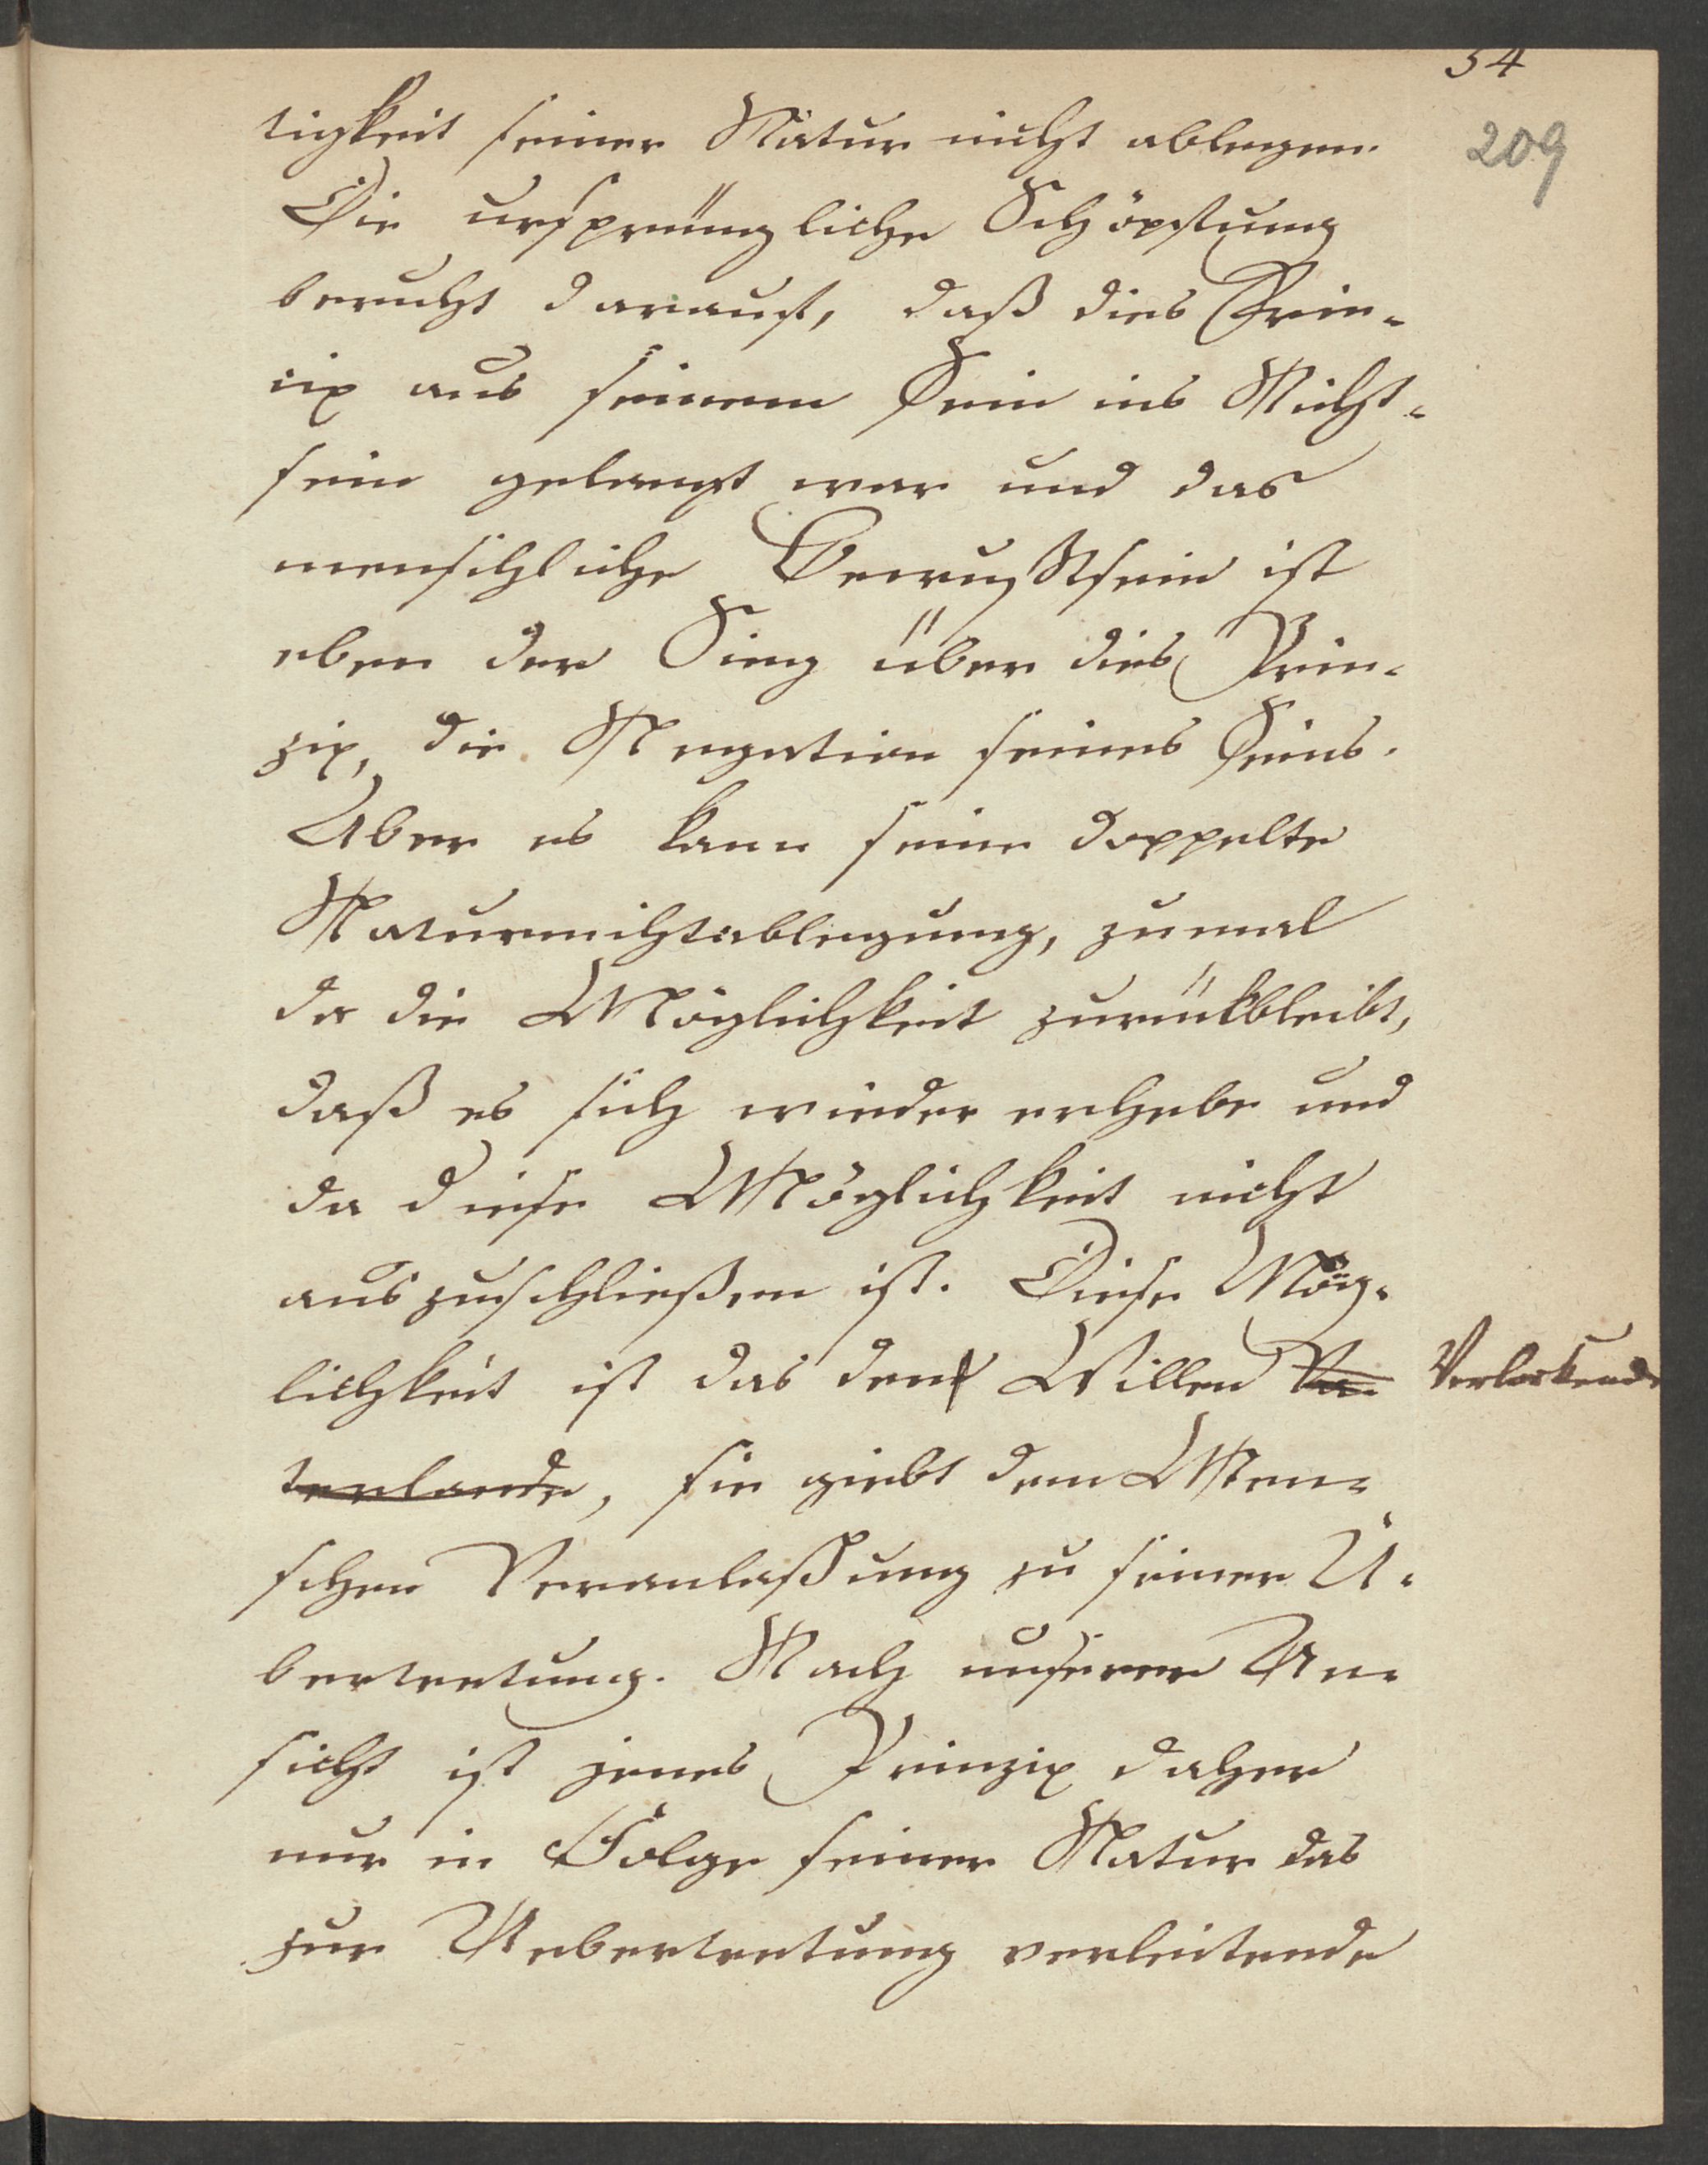 54
209
tigkeit seiner Natur nicht ablegen.
Die ursprüngliche Schöpfung
beruht darauf, daß dies Prin-
cip aus seinem Sein ins Nicht-
sein gelangt war und das
menschliche Bewußtsein ist
eben der Sieg über dies Prin-
zip, die Negation seines Seins.
Aber es kann seine doppelte
Naturnichtablegung, zumal
da die Möglichkeit zurükbleibt,
daß es sich wieder erhebe und
da diese Möglichkeit nicht
auszuschließen ist. Diese Mög-
lichkeit ist das den Willen Va- Verlockende
terlande, sie giebt dem Men-
schen Veranlaßung zu seiner Ü-
bertretung. Nach unserer An-
sicht ist jenes Prinzip daher
nur in Folge seiner Natur das
zur Uebertretung verleitende